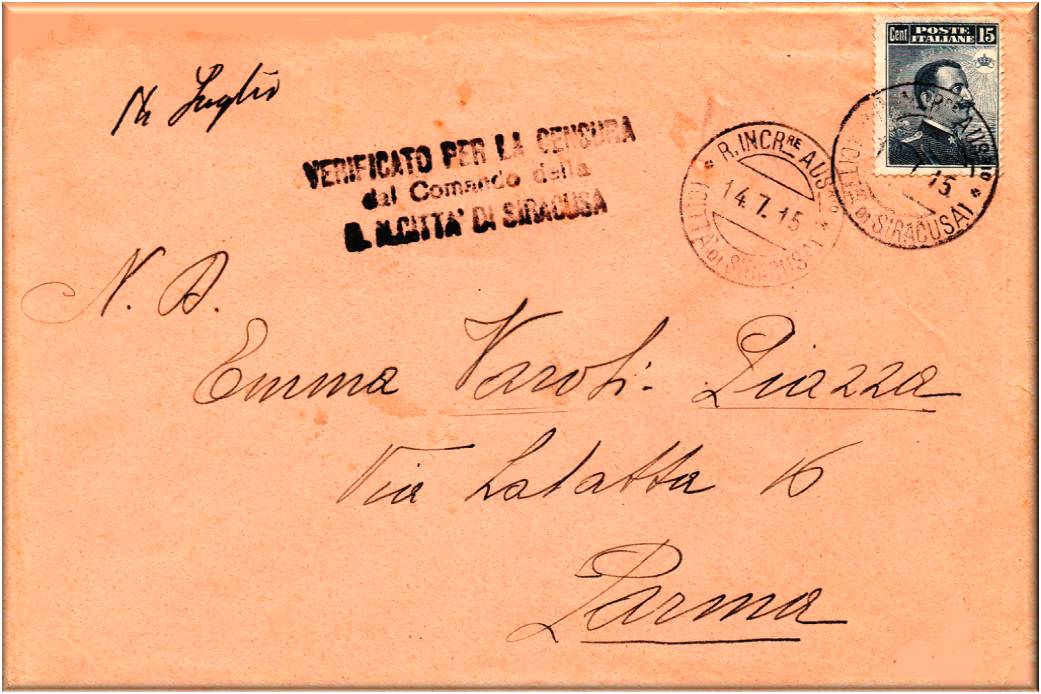 Cent POSTE ITALIANE 15
14 Luglio
VERIFICATO PER LA CENSURA
dal Comando della
R. N. CITTA' DI SIRACUSA
* R. INCR.RE AUS.RIO *
14.7.15
(CITTÀ DI SIRACUSA)
15
CITTÀ DI SIRACUSA) *
N. D.
Emma Varoli: Piazza
Via Lalatta 16
Parma